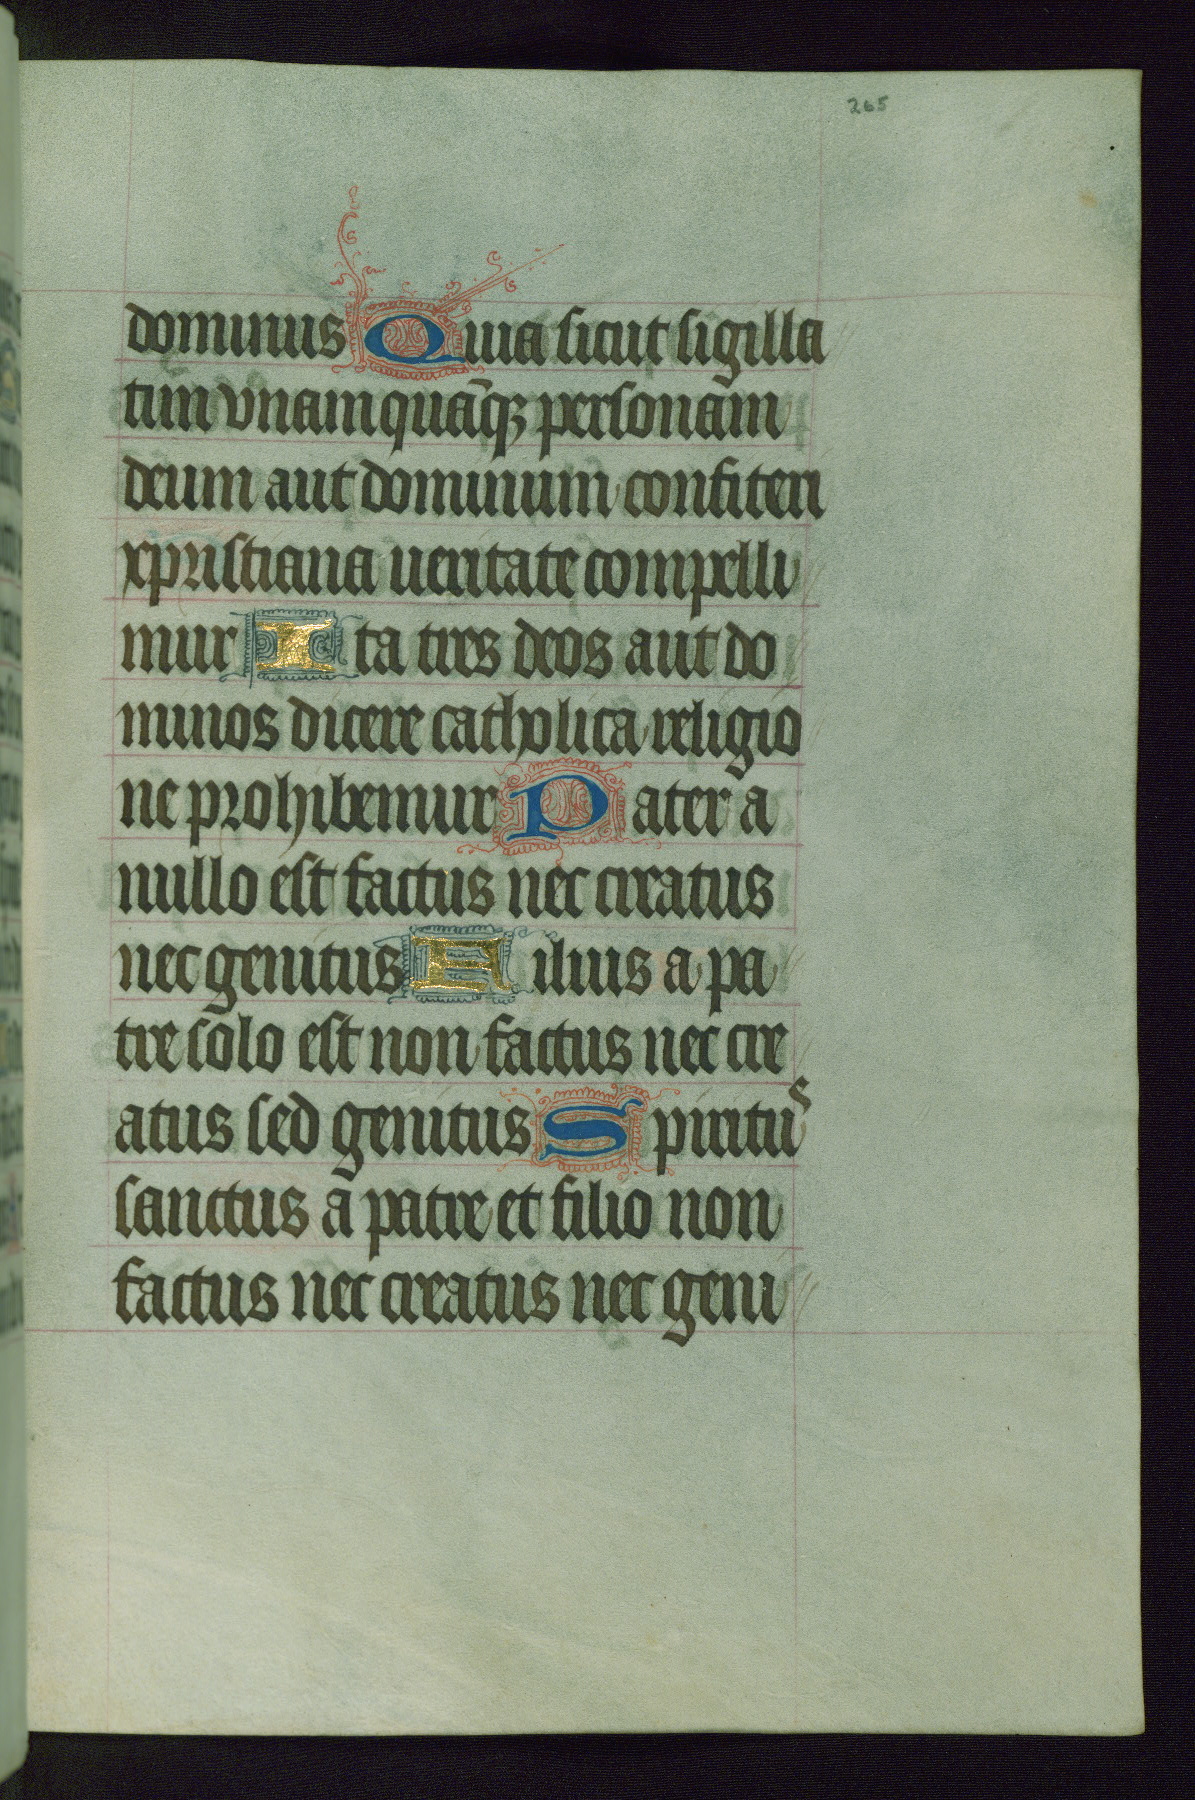 265
dominus Quia sicut sigilla
tim vnamquāqꝫ personam
deum aut dominum confiteri
xpristiana ueritate compelli
mur Ita tres deos aut do
minos dicere catholica religio
ne prohibemur Pater a
nullo est factus nec creatus
nec genitus Filius a pa
tre solo est non factus nec cre
atus sed genitus Spiritus
sanctus a patre et filio non
factus nec creatus nec geni